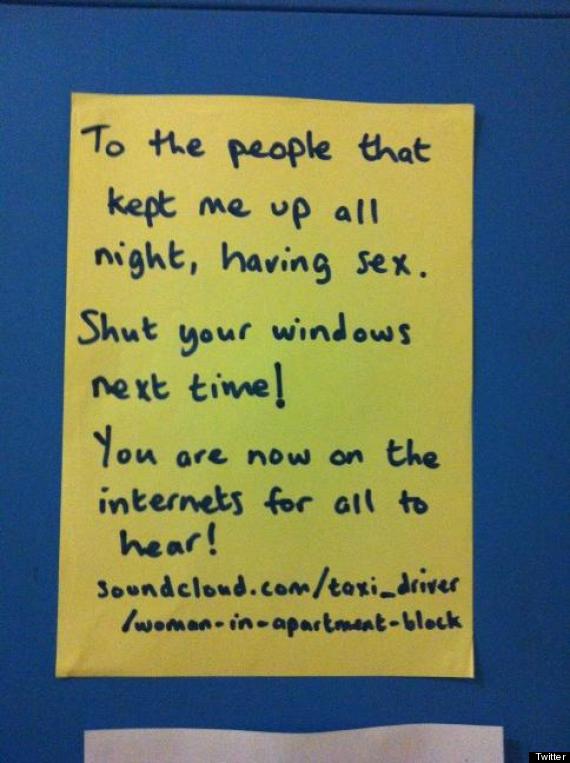 To the people that
kept me up all
night, having sex.
Shut your windows
next time!
You are now on the
internets for all to
hear!
soundcloud.com/taxi_driver
/woman-in-apartment-block
Twitter